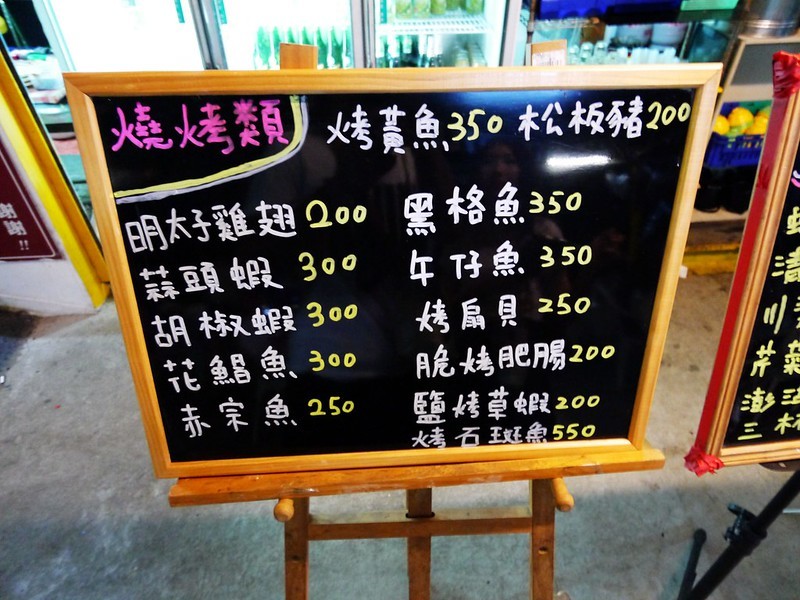 燒烤類
烤黃魚350 松板豬200
明太子雞翅200
蒜頭蝦300
胡椒蝦300
花鯧魚300
赤宗魚250
黑格魚350
午仔魚350
烤扇貝250
脆烤肥腸200
鹽烤草蝦200
烤石斑魚550
謝謝!!
川
芹菜
澎
三杯